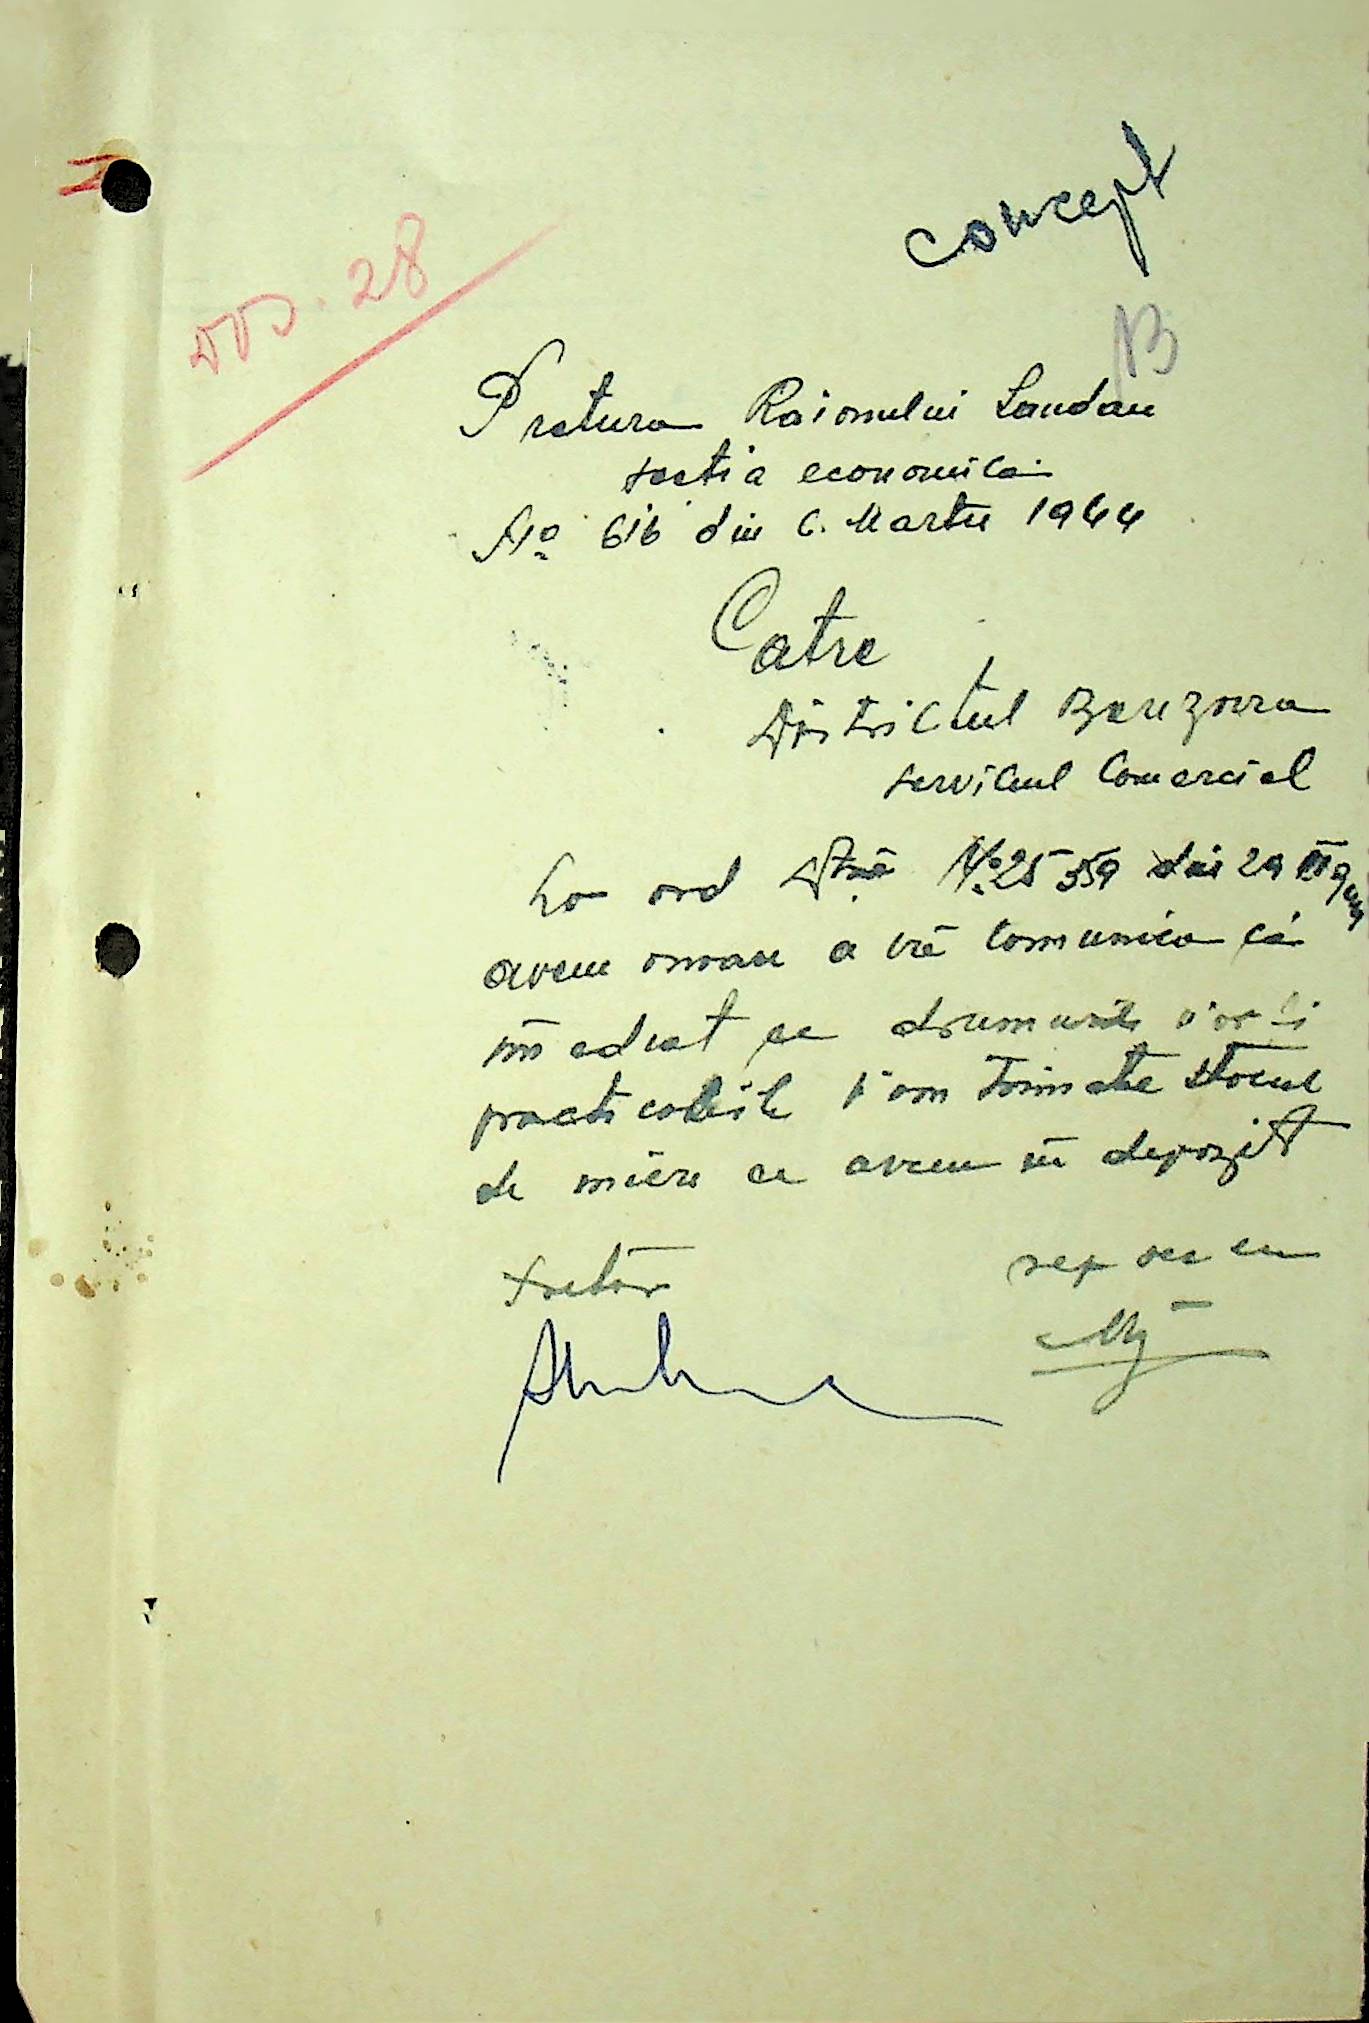 concept
Dos. 28
Pretura Raionului Landau
sectia economica
No 616 din 6. Martie 1944
Catre
Districtul Berezovca
serviciul Comercial
La ord Dvs No 25359 din 29 II 944
avem onoare a vă comunica că
imediat ce drumurile vor fi
practicabile vom trimete stocul
de miere ce avem în depozit
Pretor